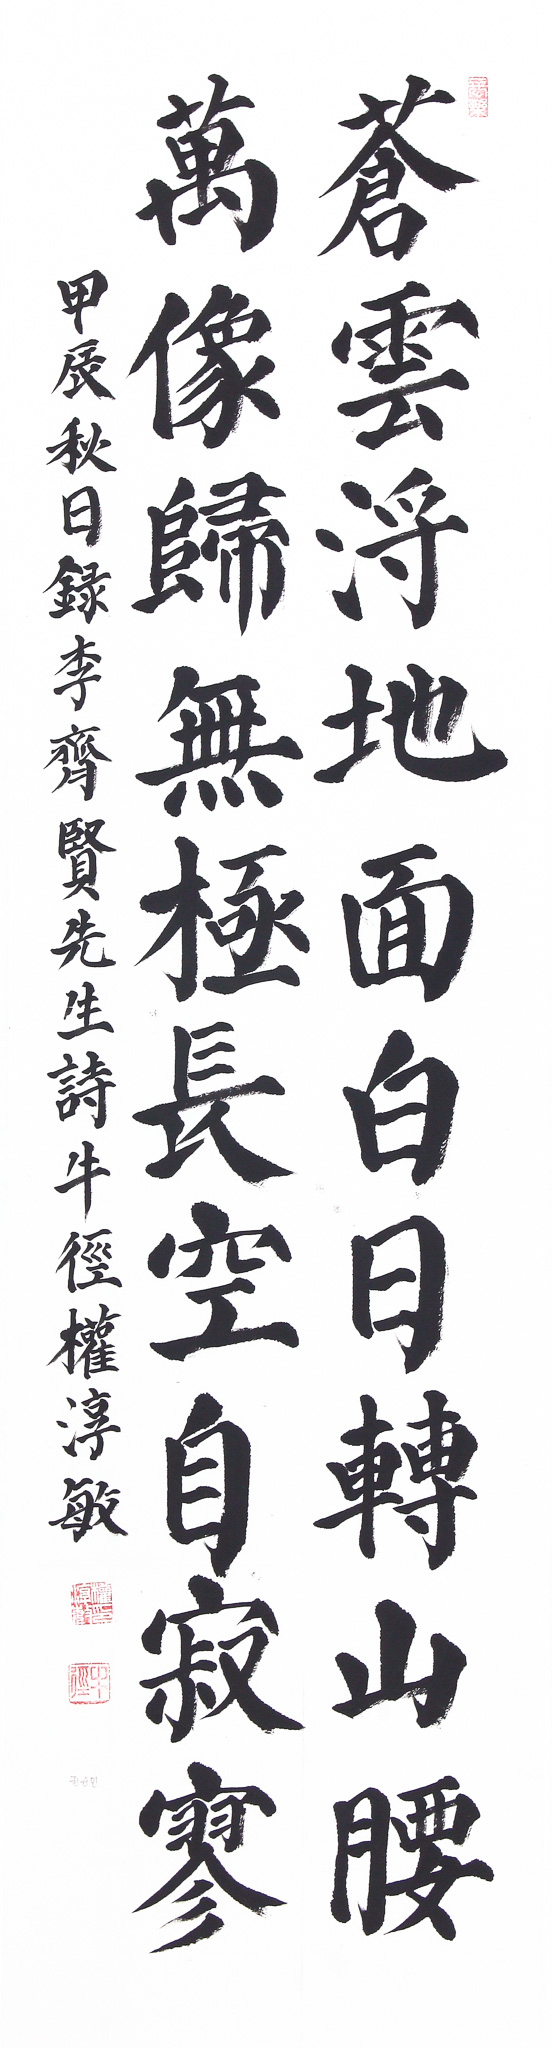 蒼雲浮地面白日轉山腰
萬像歸無極長空自寂寥
甲辰秋日録李齊賢先生詩牛徑權淳敏